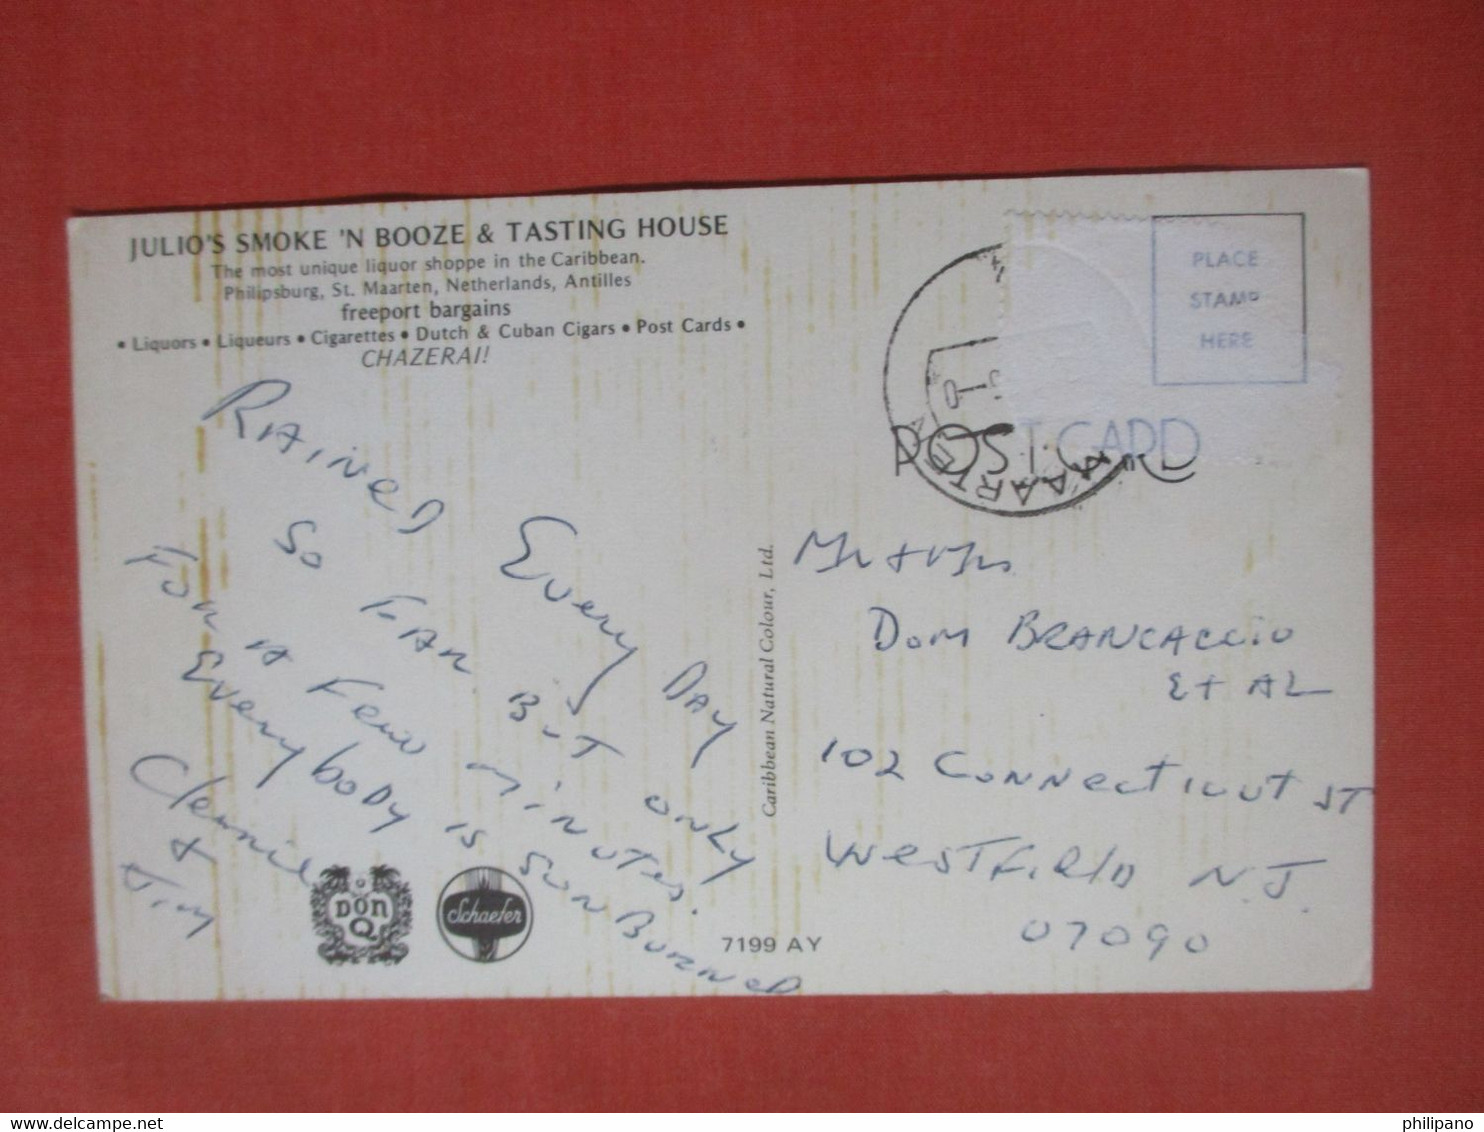 JULIO'S SMOKE 'N BOOZE & TASTING HOUSE
The most unique liquor shoppe in the Caribbean.
Philipsburg, St. Maarten, Netherlands, Antilles
freeport bargains
• Liquors • Liqueurs • Cigarettes • Dutch & Cuban Cigars • Post Cards •
CHAZERAI!
RAINED EVERY DAY
SO FAR BUT ONLY
FOR A FEW MINUTES.
EVERYBODY IS SUNBURNED
&
JIM
DON Q
Schaefer
7199 AY
Caribbean Natural Colour, Ltd.
PLACE
STAMP
HERE
POST CARD
MAARTEN
Mr + Mrs
DOM BRANCACCIO
ET AL
102 CONNECTICUT ST
WESTFIELD N.J.
07090
philipano